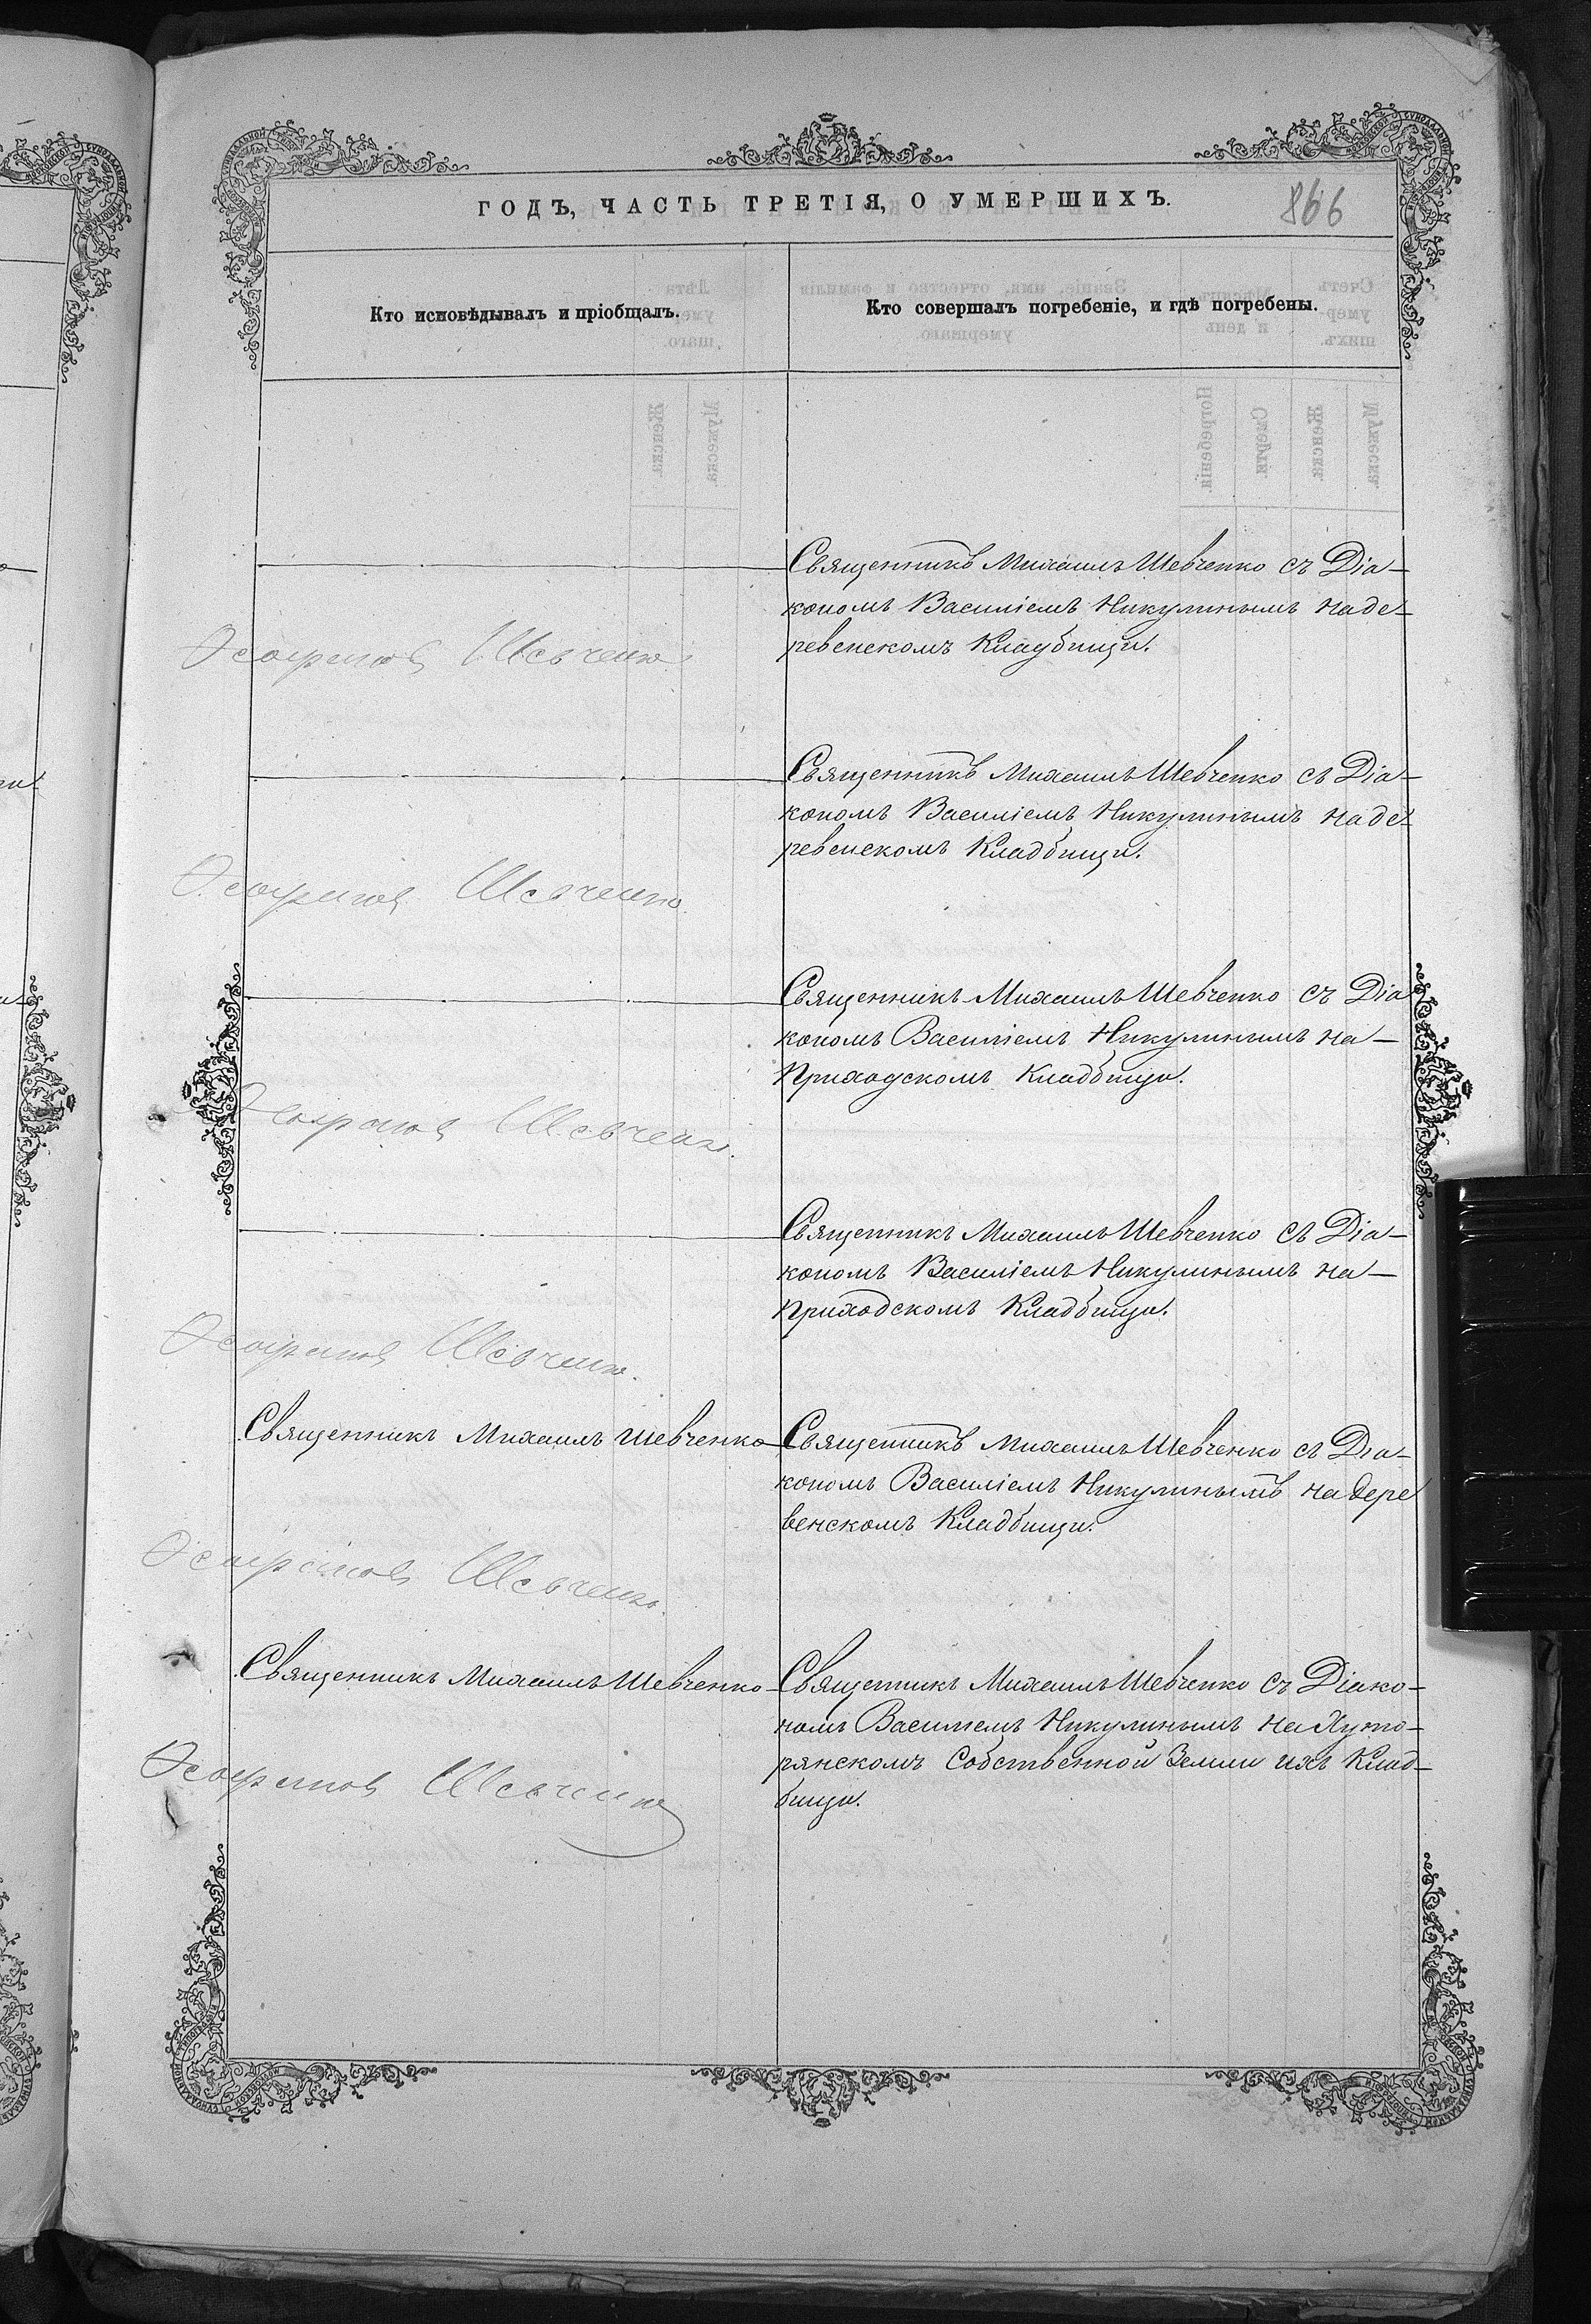 ГОДЪ, ЧАСТЬ ТРЕТІЯ, О УМЕРШИХЪ.
866
Кто исповѣдывалъ и пріобщалъ.
Кто совершалъ погребеніе, и гдѣ погребены.
Священникъ Михаилъ Шевченко съ Діа-
кономъ Василіемъ Никулинымъ на де-
ревенскомъ Кладбищи.
Шевченко
Священникъ Михаилъ Шевченко съ Діа-
кономъ Василіемъ Никулинымъ на де-
ревенскомъ Кладбищи.
Шевченко.
Священникъ Михаилъ Шевченко съ Діа
кономъ Василіемъ Никулинымъ на-
Приходскомъ Кладбищи.
Шевченко.
Священникъ Михаилъ Шевченко съ Діа-
кономъ Василіемъ Никулинымъ на-
Приходскомъ Кладбищи.
Шевченко.
Священникъ Михаилъ Шевченко
Священникъ Михаилъ Шевченко съ Діа-
кономъ Василіемъ Никулинымъ на дере
венскомъ Кладбищи.
Шевченко.
Священникъ Михаилъ Шевченко
Священникъ Михаилъ Шевченко съ Діако-
номъ Василіемъ Никулинымъ на Хуто-
рянскомъ Собственной Земли ихъ Клад-
бищи.
Шевченко